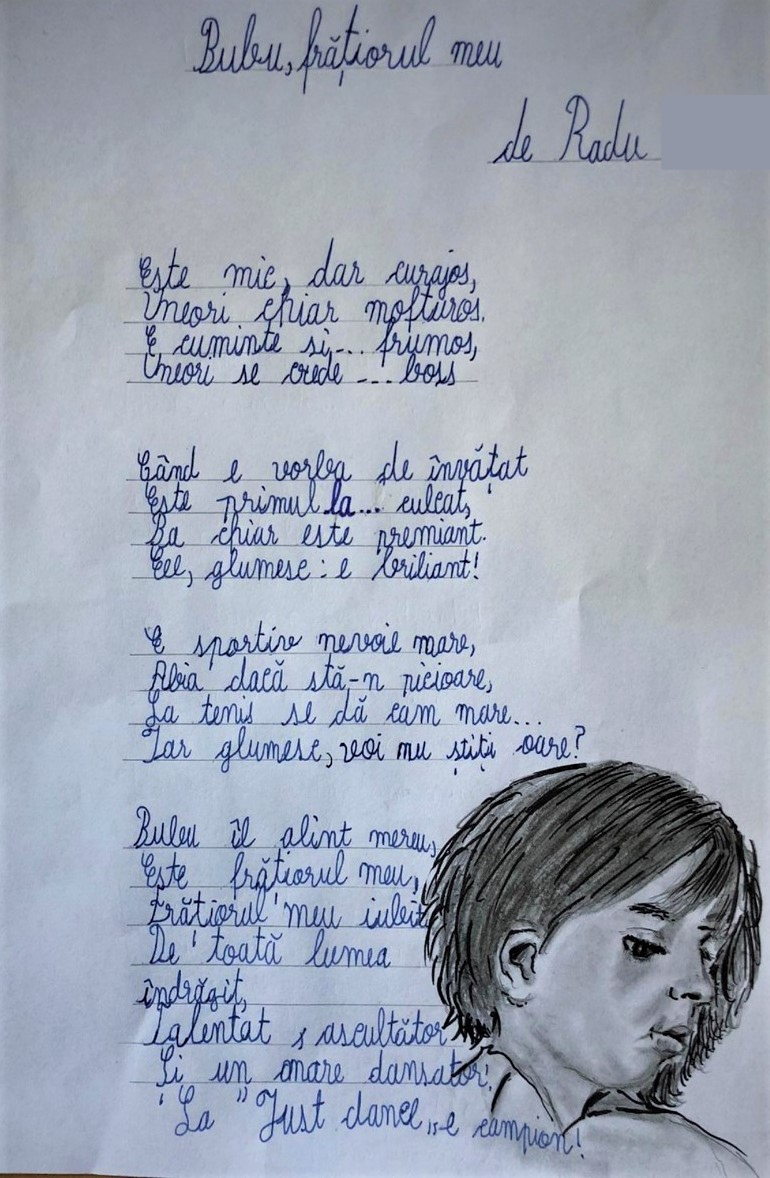 Bubu, frățiorul meu
de Radu
Este mic, dar curajos,
Uneori chiar mofturos.
E cuminte și... frumos,
Uneori se crede ... boss
Când e vorba de învățat
Este primul la... culcat,
Ba chiar este premiant.
Eee, glumesc: e briliant!
E sportiv nevoie mare,
Abia dacă stă-n picioare,
La tenis se dă cam mare...
Iar glumesc, voi nu știți oare?
Bubu îl alint mereu,
Este frățiorul meu,
Frățiorul meu iubit
De toată lumea
îndrăgit,
Talentat, ascultător
Și un mare dansator!
La "Just dance„-e campion!